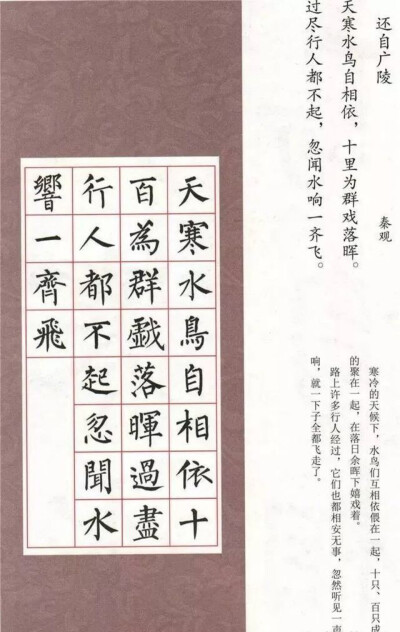 还自广陵
秦观
天寒水鸟自相依，十里为群戏落晖。
过尽行人都不起，忽闻水响一齐飞。
寒冷的天候下，水鸟们互相依偎在一起，十只、百只成
的聚在一起，在落日余晖下嬉戏着。
路上许多行人经过，它们也都相安无事，忽然听见一声
响，就一下子全都飞走了。
天寒水鳥自相依十
百為群戲落暉過盡
行人都不起忽聞水
響一齊飛